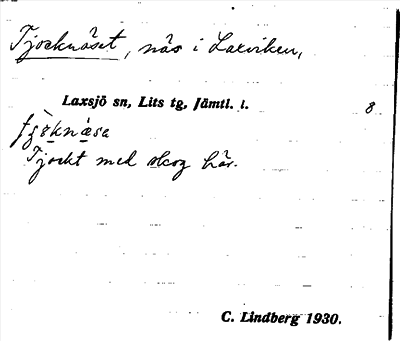 Tjocknäset, näs i Laxviken,
Laxsjö sn, Lits tg, Jämtl. l. 8
Tjockt med skog här.
C. Lindberg 1930.